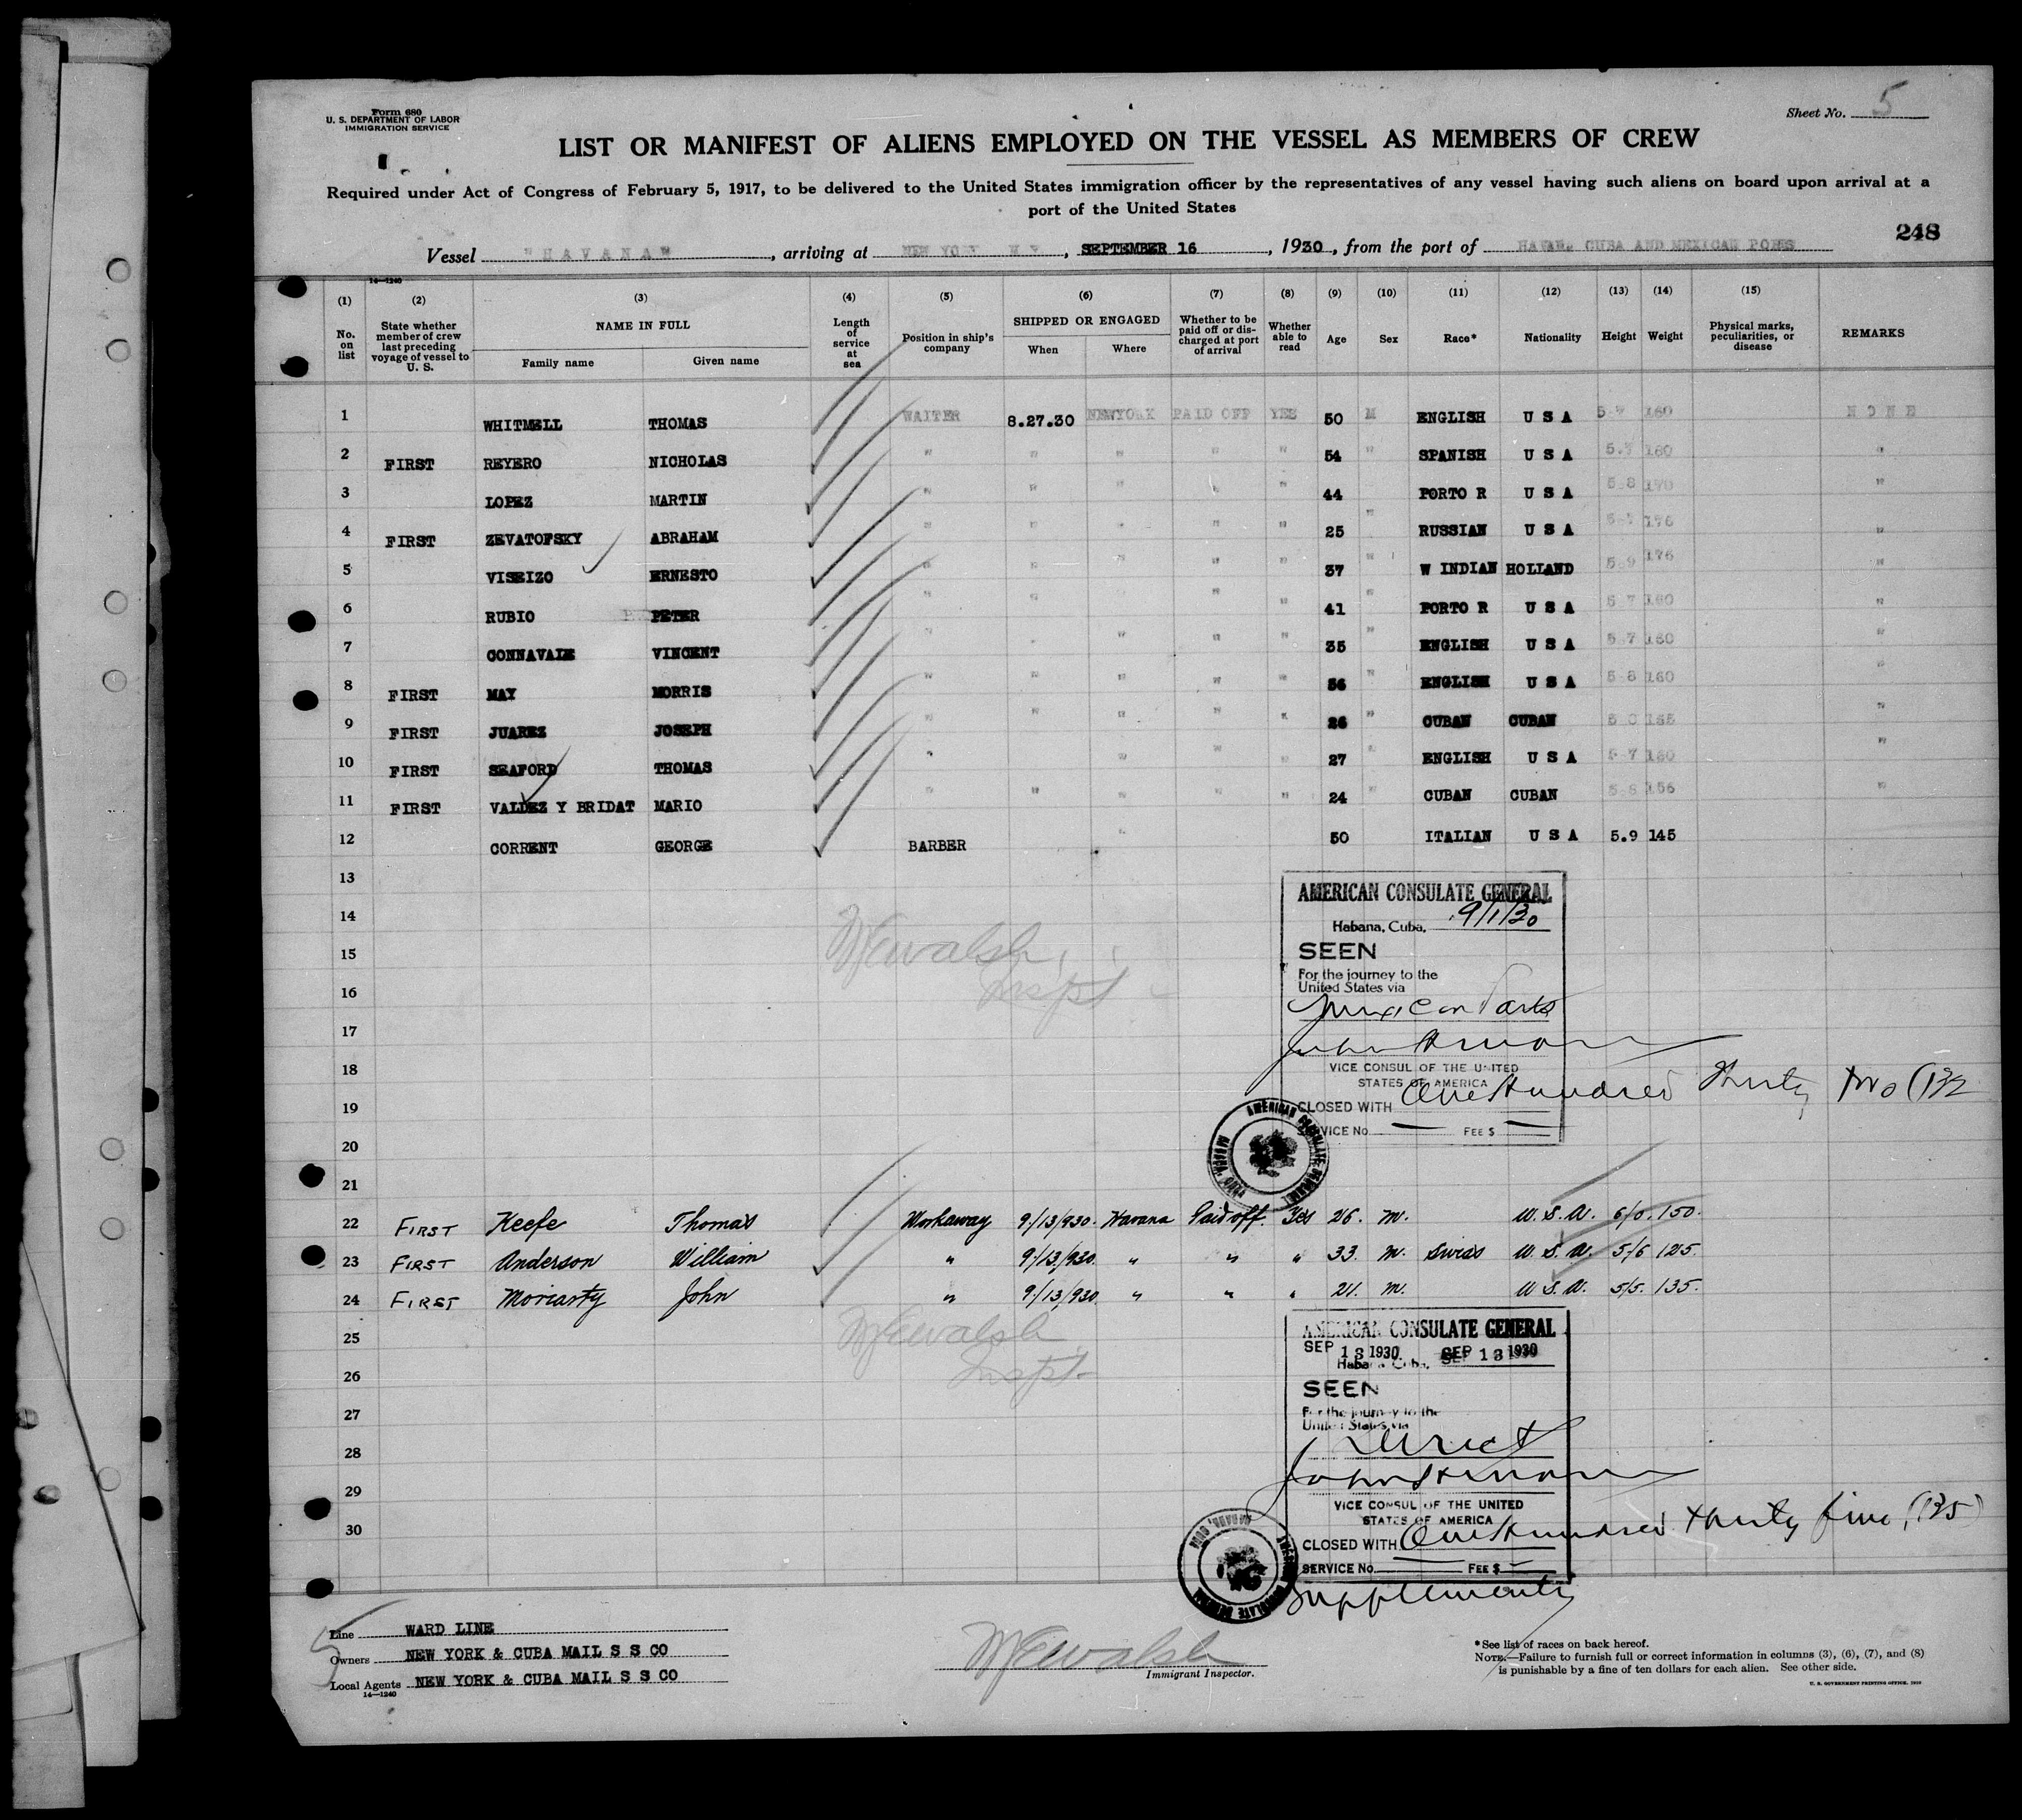 Form 680
U. S. DEPARTMENT OF LABOR
IMMIGRATION SERVICE
Sheet No. 5
LIST OR MANIFEST OF ALIENS EMPLOYED ON THE VESSEL AS MEMBERS OF CREW
Required under Act of Congress of February 5, 1917, to be delivered to the United States immigration officer by the representatives of any vessel having such aliens on board upon arrival at a
port of the United States
248
Vessel "HAVANA", arriving at NEW YORK N Y, SEPTEMBER 16, 1930, from the port of HAVANA CUBA AND MEXICAN PORTS
14—1240
(1) (2) (3) (4) (5) (6) (7) (8) (9) (10) (11) (12) (13) (14) (15)
No. on list State whether member of crew last preceding voyage of vessel to U. S. NAME IN FULL Family name Given name Length of service at sea Position in ship's company SHIPPED OR ENGAGED When Where Whether to be paid off or discharged at port of arrival Whether able to read Age Sex Race* Nationality Height Weight Physical marks, peculiarities, or disease REMARKS
1 WHITMELL THOMAS WAITER 8.27.30 NEWYORK PAID OFF YES 50 M ENGLISH U S A 5 7 160 NONE
2 FIRST REYERO NICHOLAS " " " " " 54 " SPANISH U S A 5.7 160 "
3 LOPEZ MARTIN " " " " " 44 PORTO R U S A 5 8 170 "
4 FIRST ZEVATOFSKY ABRAHAM " " " " " 25 " RUSSIAN U S A 5 7 176 "
5 VISEIZO ERNESTO " " " " " 37 " W INDIAN HOLLAND 5 9 176 "
6 RUBIO PETER " " " " 41 " PORTO R U S A 5 7 160 "
7 CONNAVALE VINCENT " " " " " 35 " ENGLISH U S A 5 7 160 "
8 FIRST MAY MORRIS " " " " " 56 " ENGLISH U S A 5 8 160 "
9 FIRST JUAREZ JOSEPH " " " " " 26 " CUBAN CUBAN "
10 FIRST SEAFORD THOMAS " " " " 27 " ENGLISH U S A 5 7 160 "
11 FIRST VALDEZ Y BRIDAT MARIO " " " " " 24 " CUBAN CUBAN 5.8 156 "
12 CORRENT GEORGE BARBER " 50 ITALIAN U S A 5.9 145
13
14
15
16
17
18
19
20
21
McWalsh
Inspt
AMERICAN CONSULATE GENERAL
Habana, Cuba, 9/1/30
SEEN
For the journey to the
United States via
Mexican Ports
VICE CONSUL OF THE UNITED
STATES OF AMERICA
CLOSED WITH One Hundred Thirty Two (132
SERVICE No. — FEE $ —
22 FIRST Keefe Thomas Workaway 9/13/930. Havana Paid off. Yes 26. m. U. S. A. 6/0. 150.
23 FIRST Anderson William " 9/13/930. " " " 33. m. Swiss U. S. A. 5/6 125.
24 FIRST Moriarty John " 9/13/930. " " " 21. m. U. S. A. 5/5. 135.
25
26
27
28
29
30
McWalsh
Inspt
AMERICAN CONSULATE GENERAL
SEP 13 1930 SEP 13 1930
Habana, Cuba,
SEEN
For the journey to the
United States via
Direct
VICE CONSUL OF THE UNITED
STATES OF AMERICA
CLOSED WITH One Hundred thirty five, (135)
SERVICE No. — FEE $ —
Supplementy
5
Line WARD LINE
Owners NEW YORK & CUBA MAIL S S CO
Local Agents NEW YORK & CUBA MAIL S S CO
14—1240
McWalsh
Immigrant Inspector.
*See list of races on back hereof.
NOTE.—Failure to furnish full or correct information in columns (3), (6), (7), and (8)
is punishable by a fine of ten dollars for each alien. See other side.
U. S. GOVERNMENT PRINTING OFFICE.